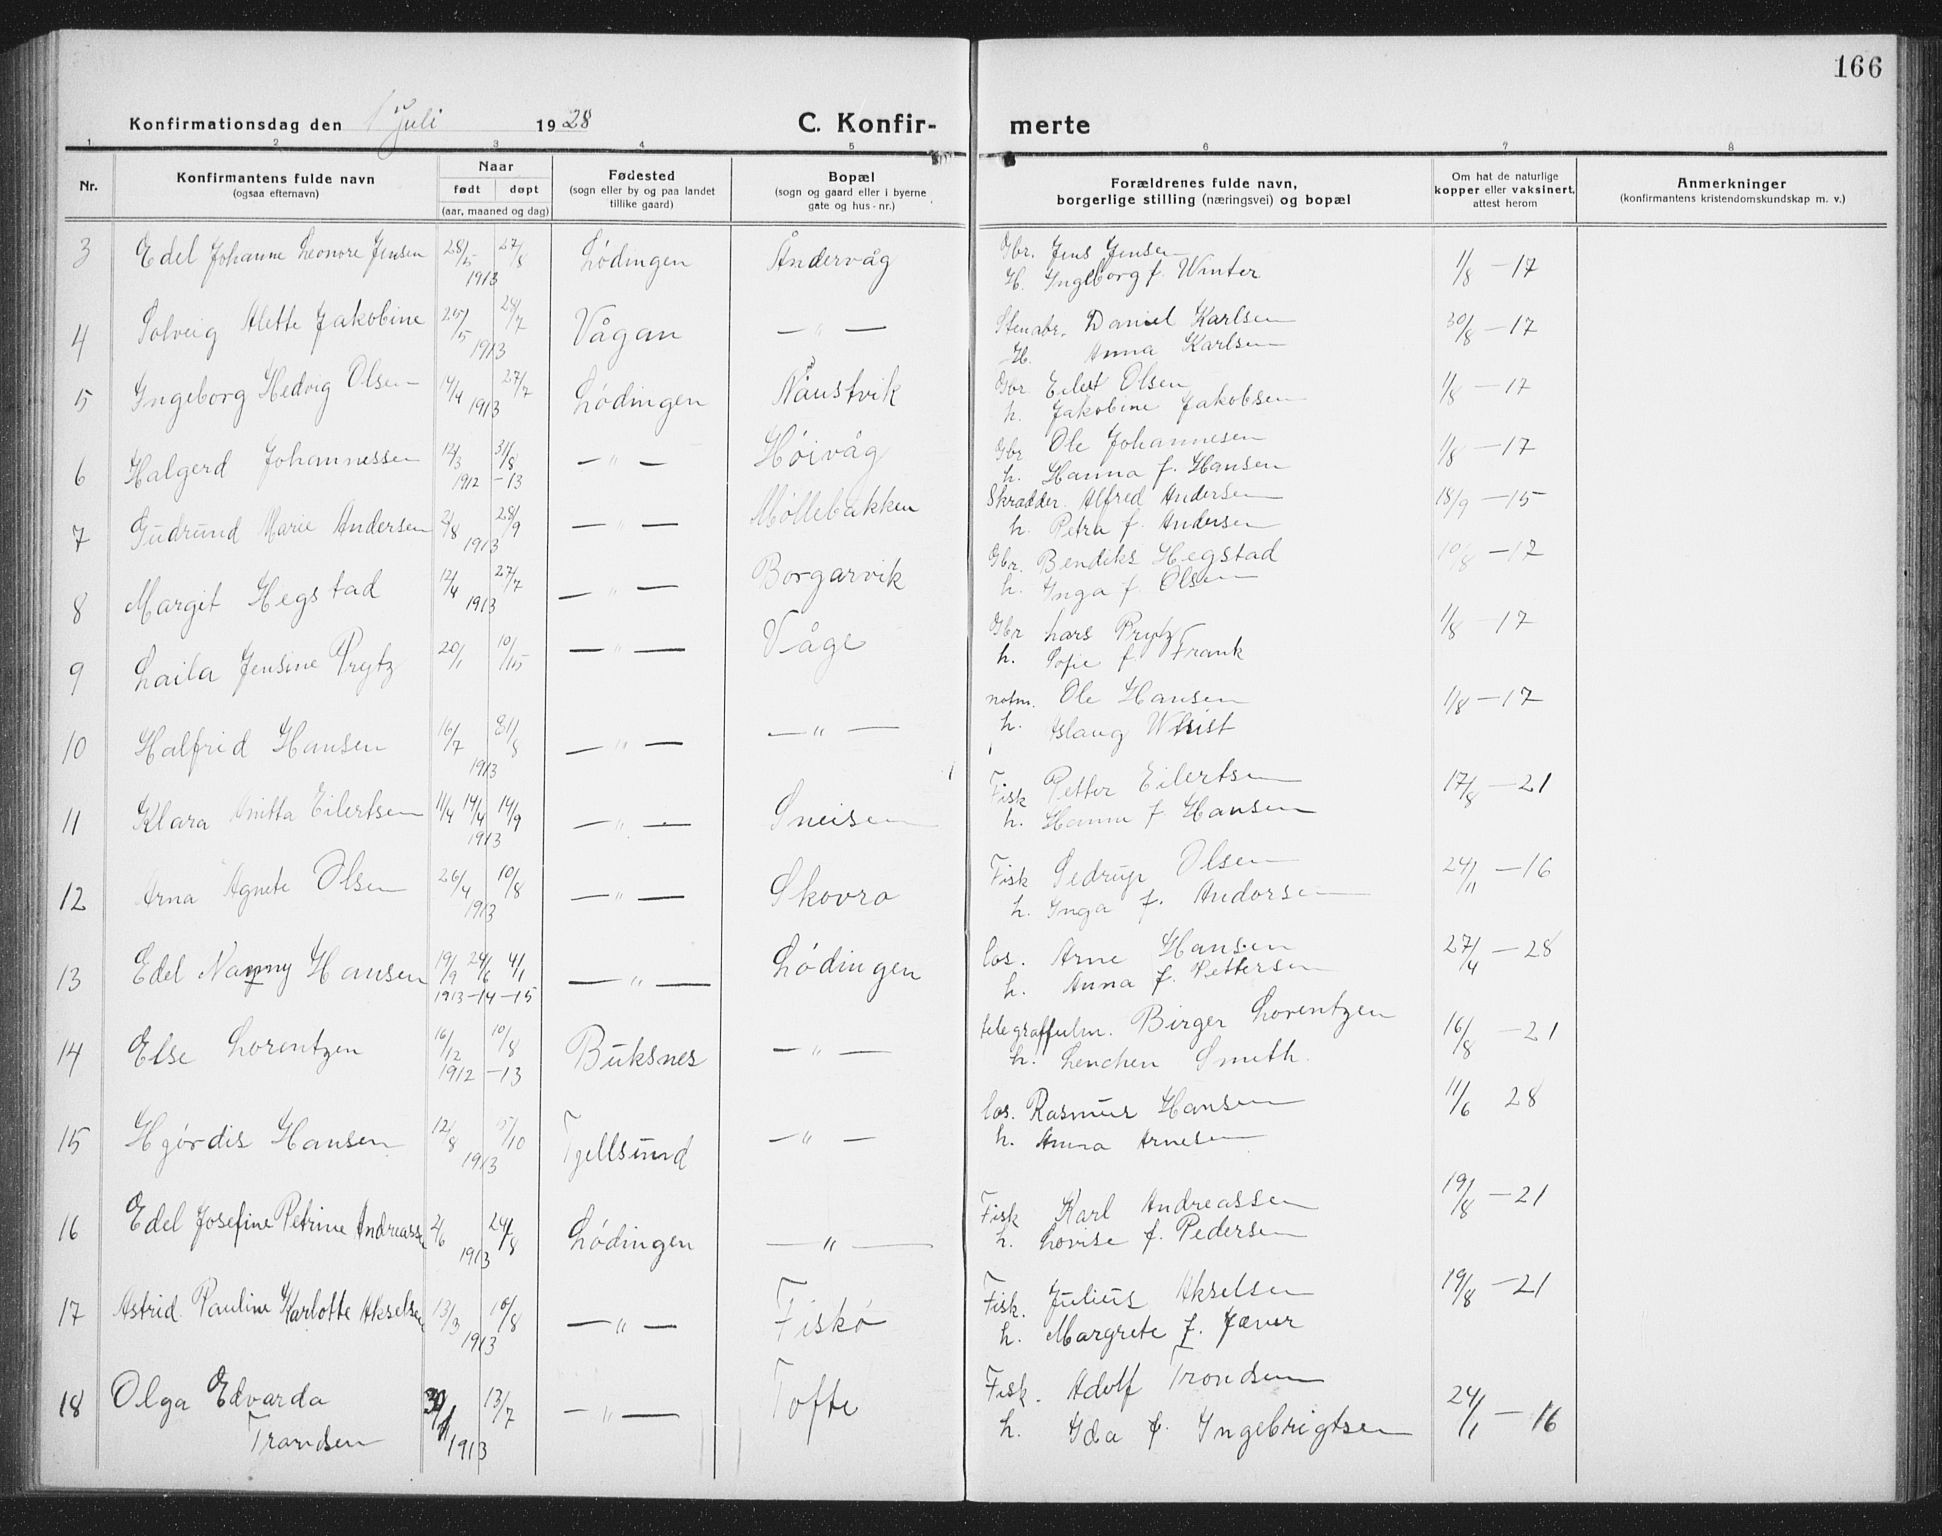 166
Konfirmationsdag den 1 Juli 1928 C. Konfir- merte
1 2 3 4 5 6 7 8
Nr.
Konfirmantens fulde navn
(ogsaa efternavn)
Naar
født døpt
(aar, maaned og dag)
Fødested
(sogn eller by og paa landet
tillike gaard)
Bopæl
(sogn og gaard eller i byerne
gate og hus-nr.)
Forældrenes fulde navn,
borgerlige stilling (næringsvei) og bopæl
Om hat de naturlige
kopper eller vaksinert,
attest herom
Anmerkninger
(konfirmantens kristendomskundskap m. v.)
3 Edel Johanne Leonore Jensen 28/5 27/8 1913 Lødingen Åndervåg Gbr. Jens Jensen 1/8 - 17
H. Ingeborg f. Winter
4 Solveig Alette Jakobine 25/5 28/7 1913 Vågan — " — Stenabr. Daniel Karlsen 30/8 - 17
H. Anna Karlsen
5 Ingeborg Hedvig Olsen 14/4 27/7 1913 Lødingen Naustvik Gbr Eilert Olsen 1/8 - 17
h. Jakobine Jakobsen
6 Halgerd Johannessen 12/3 31/8 1912 -13 — " — Høivåg Gbr Ole Johannesen 1/8 - 17
h. Hanna f. Hansen
7 Gudrund Marie Andersen 2/8 28/9 1913 — " — Møllebakken Skrædder. Alfred Andersen 18/9 - 15
h. Petra f. Andersen
8 Margit Hegstad 12/4 27/7 1913 — " — Borgarvik Gbr. Bendiks Hegstad 10/8 - 17
h. Inga f. Olsen
9 Laila Jensine Prytz 20/1 10/ 15 — " — Våge Gbr Lars Prytz 1/8 - 17
h. Sofie f. Frank
10 Halfrid Hansen 16/7 31/8 1913 — " — — " — notm. Ole Hansen 1/8 - 17
h. Aslaug
11 Klara Anitta Eilertsen 11/4 14/4 14/9 1913 — " — Sneisen Fisk Petter Eilertsen 17/8 - 21
h. Hanna f Hansen
12 Arna Agnete Olsen 26/4 10/8 1913 — " — Skovro Fisk Sedrup Olsen 24/11 - 16
h. Inga f. Andorsen
13 Edel Nanny Hansen 19/9 24/6 4/1 1913 -14 -15 — " — Lødingen los. Arne Hansen 27/4 - 28
h. Anna f. Pettersen
14 Else Lorentzen 16/12 10/8 1912 -13 Buksnes — " — telegraffulm. Birger Lorentzen 16/8 - 21
h. Lenchen Smith.
15 Hjørdis Hansen 12/8 5/10 1913 Tjellsund — " — los. Rasmus Hansen 11/6 28
h. Anna Arnesen
16 Edel Josefine Petrine Andreassen 2/6 24/8 1913 Lødingen — " — Fisk Karl Andreassen 19/8 - 21
h. Lovise f. Pedersen
17 Astrid Pauline Karlotte Akselsen 13/3 16/8 1913 — " — Fiskø Fisk. Julius Akselsen 19/8 - 21
h. Margrete f. Jæver
18 Olga Edvarda 13/7 — " — Tofte Fisk. Adolf Trondsen 24/1 - 16
Trondsen 1913 h. Ida f. Ingebrigtsen